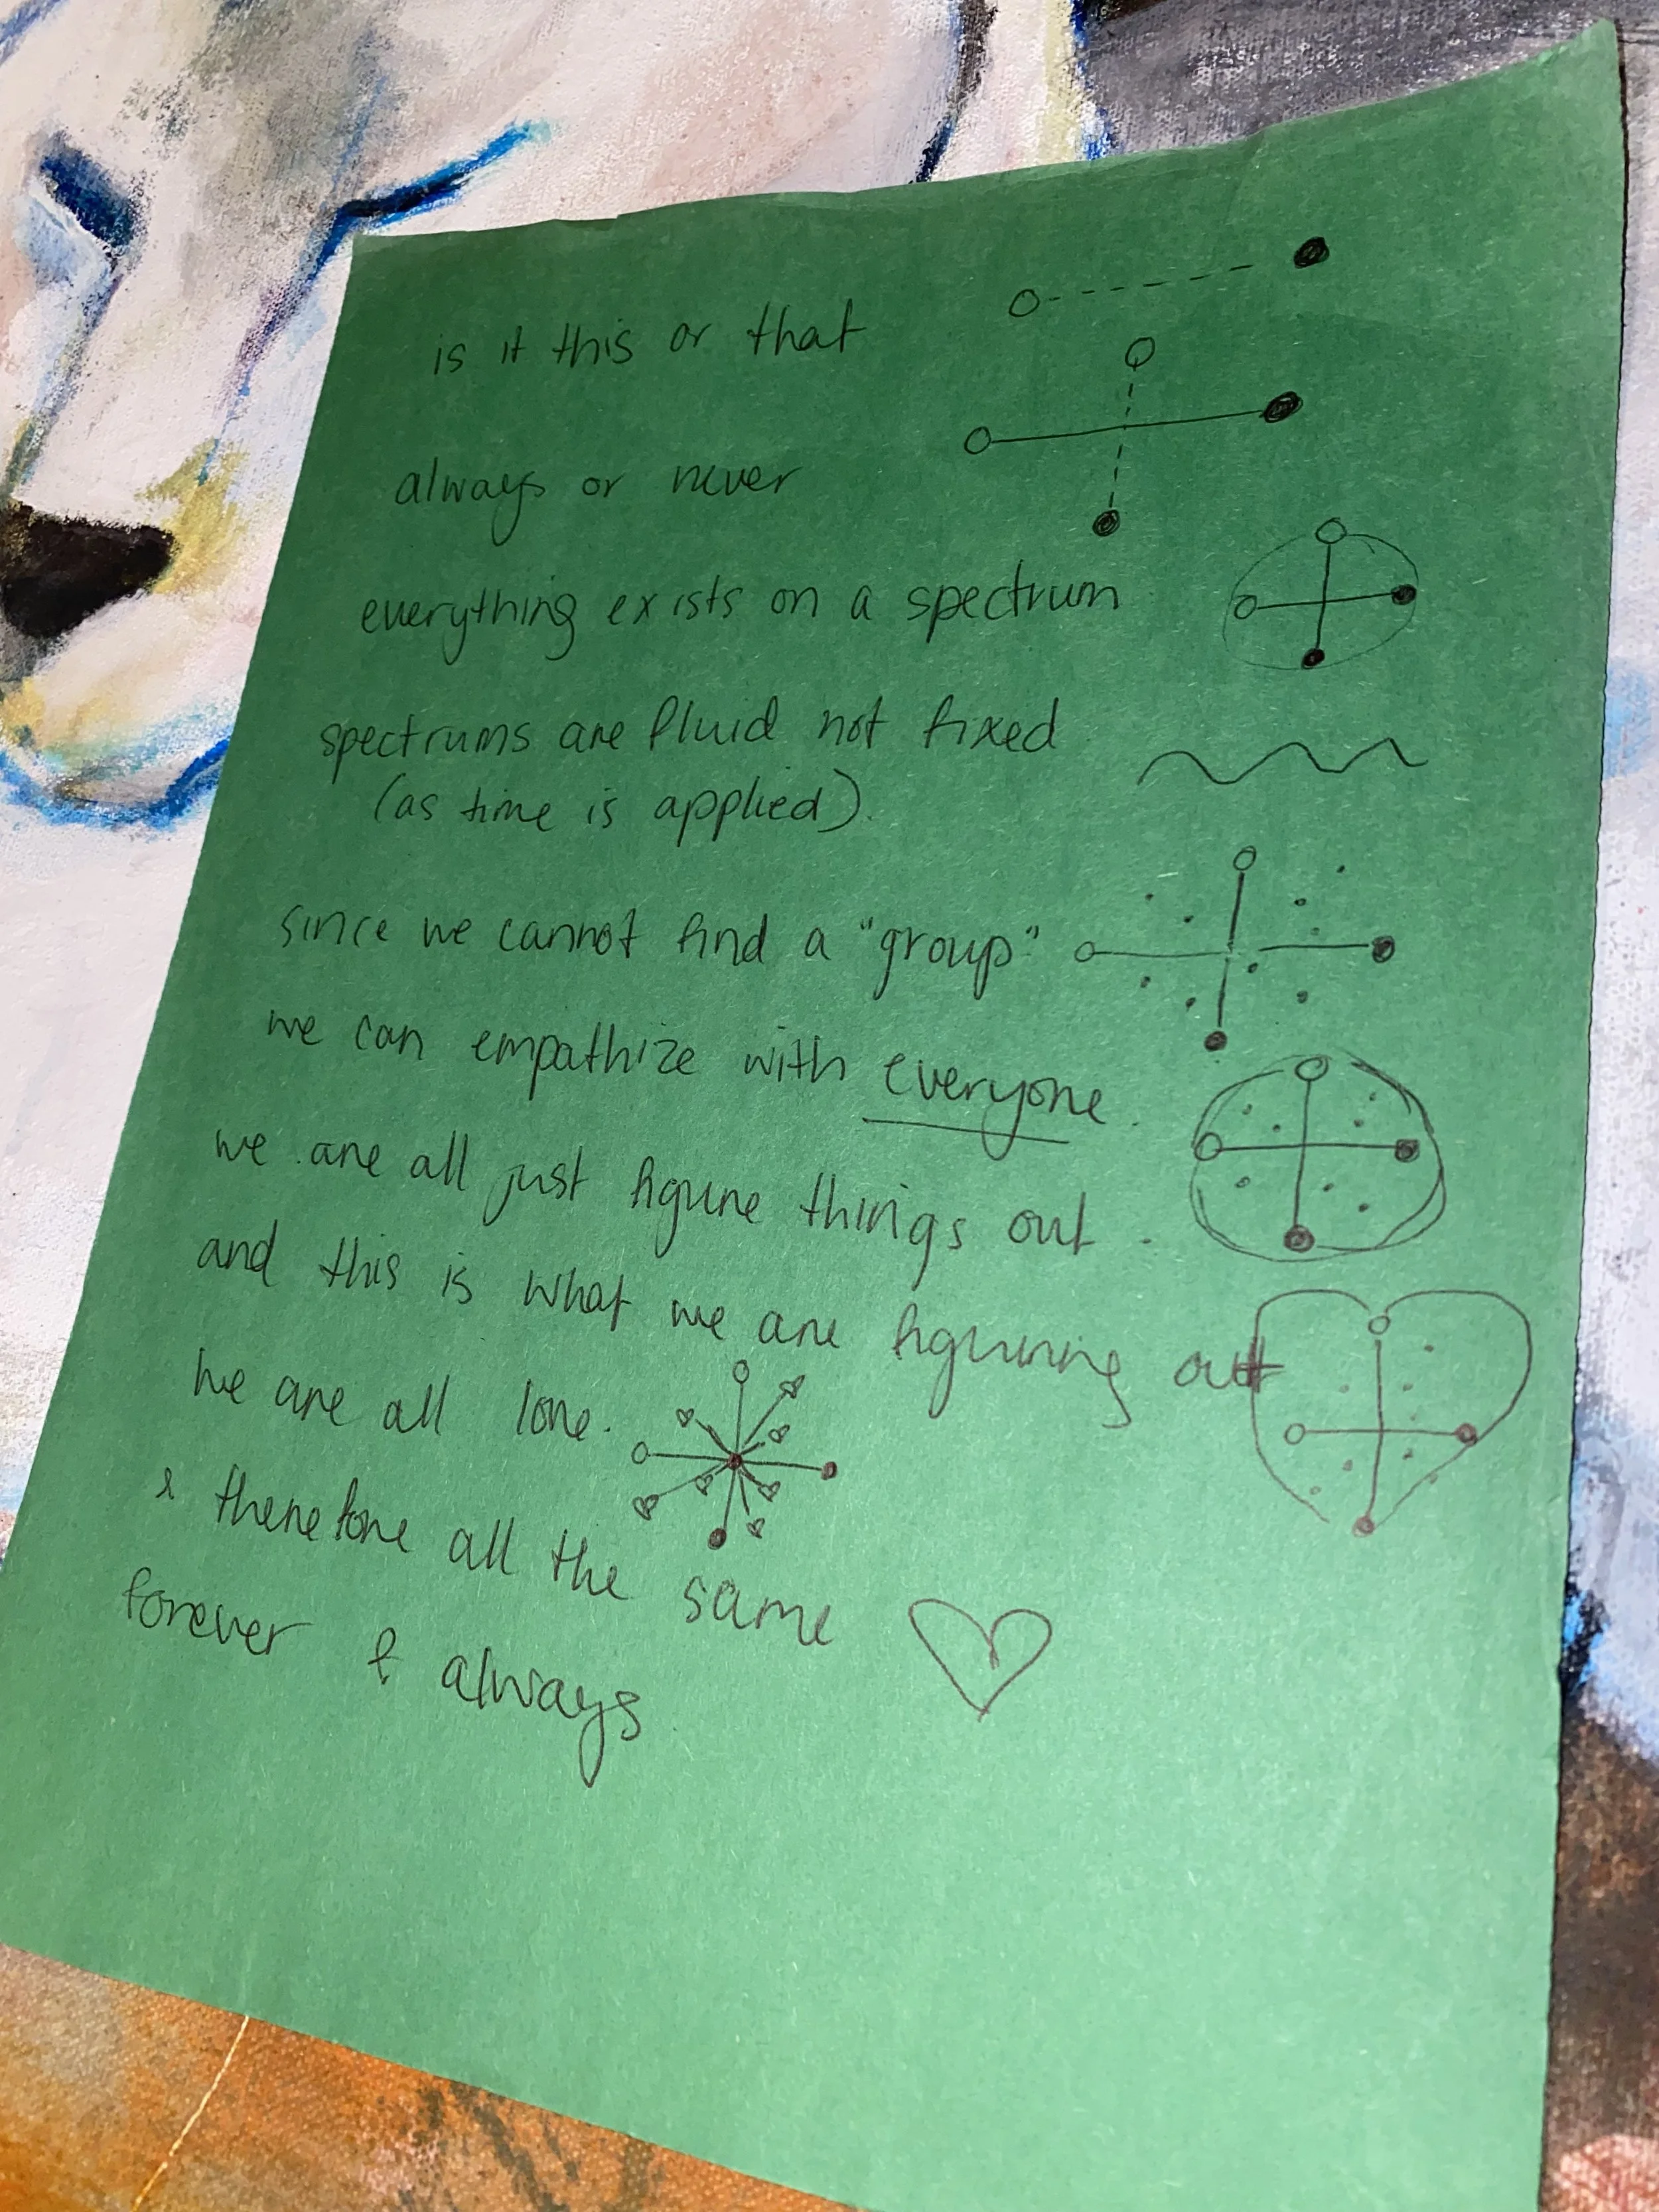 is it this or that
always or never
everything exists on a spectrum
spectrums are fluid not fixed
(as time is applied).
since we cannot find a "group"
we can empathize with everyone.
we are all just figure things out.
and this is what we are figuring out
we are all love.
& therefore all the same
forever & always